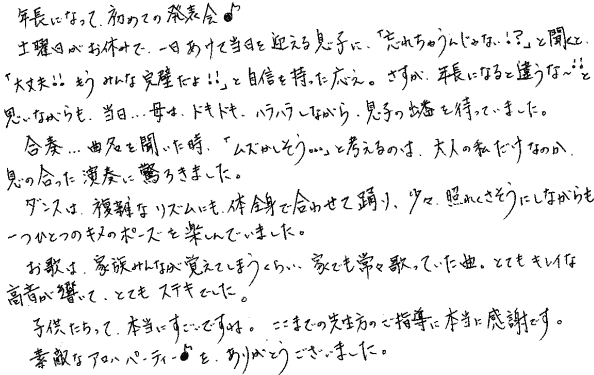 年長になって、初めての発表会♪
土曜日がお休みで、一日あけて当日を迎える息子に、「忘れちゃうんじゃない!?」と聞くと、
「大丈夫!!もうみんな完璧だよ!!」と自信を持った応え。さすが、年長になると違うな〜!!と
思いながらも、当日…母は、ドキドキ、ハラハラしながら、息子の出番を待っていました。
合奏…曲名を聞いた時、「ムズかしそう。。。」と考えるのは、大人の私だけなのか、
息の合った演奏に驚ろきました。
ダンスは、複雑なリズムにも、体全身で合わせて踊り、少々、照れくさそうにしながらも
一つひとつのキメのポーズを楽しんでいました。
お歌は、家族みんなが覚えてしまうくらい、家でも常々歌っていた曲。とてもキレイな
高音が響いて、とてもステキでした。
子供たちって、本当にすごいですね。ここまでの先生方のご指導に本当に感謝です。
素敵なアロハパーティー♪を、ありがとうございました。